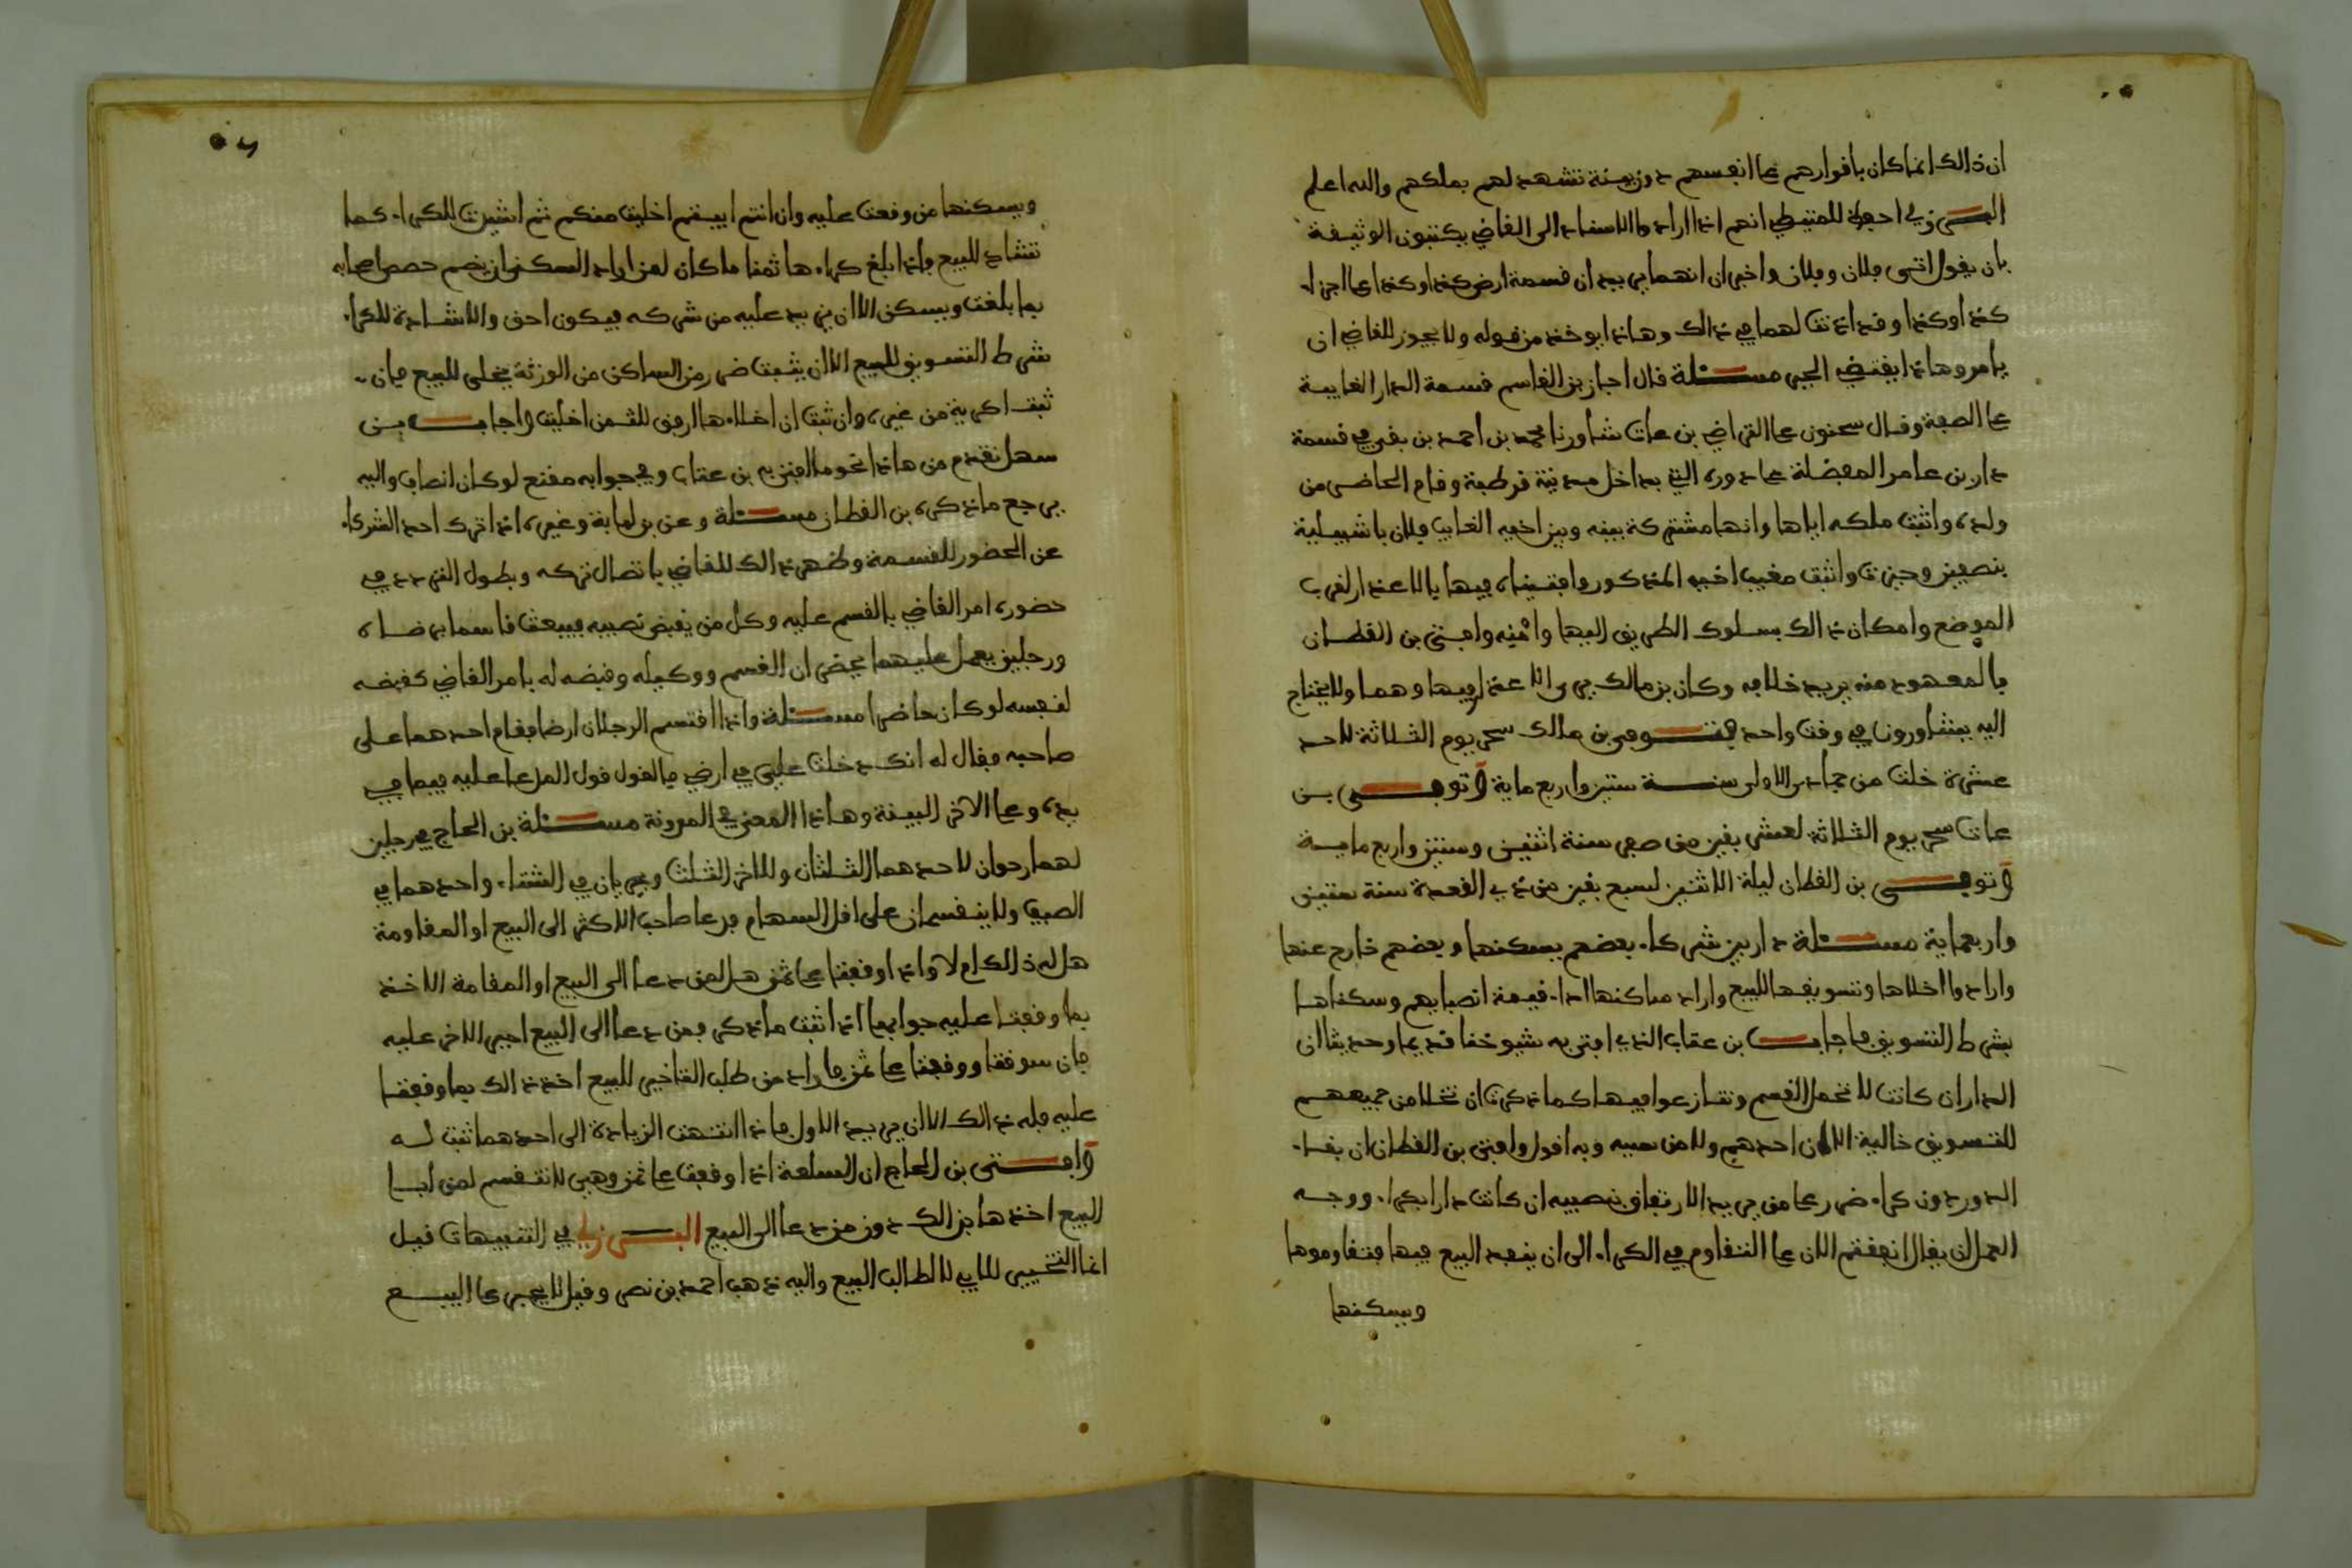 ان ذالك انما كان باقرارهم على انفسهم دون بينة تشهد لهم بملكهم والله اعلم
البرزلي احوط للمتيطي انهم اذا ارادوا الاسناد الى القاضي يكتبون الوثيقة
بان يقول اتى فلان وفلان واخبران انهما يريدان قسمة ارض كذا وكذا على اجزاء
كذا وكذا وقد اذنت لهما في ذالك وهاذا يوخذ من قوله ولا يجوز للقاضي ان
يامر وهاذا يقتضي الجبر مسئلة قال اجاز بن القاسم قسمة الدار الغايبة
على الصفة وقال سحنون على التراضي بن عات شاورنا محمد بن احمد بن بقي في قسمة
دار بن عامر المفضلة على دوره التي بداخل مدينة قرطبة وقام الحاضر من
ولده واثبت ملكه اياها وانها مشتركة بينه وبين اخيه الغايب فلان باشبيلية
بنصفين وحيزت واثبت مغيب اخيه المذكور وافتيناه فيها بالاعذار لقرب
الموضع وامكان ذالك بسلوك الطريق اليها وامنه وافتى بن القطان
بالمعهود منه يريد خلافه وكان بن مالك يرى الاعذار فيها وهما ولا يحتاج
اليه يتشاورون في وقت واحد فتوفي بن مالك سحر يوم الثلاثة لاحد
عشرة خلت من جمادى الاولى سنة ستين واربع ماية وتوفي بن
عات سحر يوم الثلاثة لعشر بقين من صفر سنة اثنين وستين واربع ماية
وتوفي بن القطان ليلة الاثنين لسبع بقين من ذي القعدة سنة ستين
واربعماية مسئلة دار بين شركاء بعضهم يسكنها وبعضهم خارج عنها
وارادوا اخلاها وتسويقها للبيع واراد ساكنها اداء قيمة انصبايهم وسكناها
بشرط التسويق فاجاب بن عتاب الذي افتى به شيوخنا قديما وحديثا ان
الدار ان كانت لا تحمل القسم وتنازعوا فيها كما ذكرت ان تخلا من جميعهم
للتسويق خالية الا ان احدهم ولا من سببه وبه اقول وافتى بن القطان ان بقاء
الدور دون كراء ضرر على من يريد الارتفاق بنصيبه ان كانت دارا بكراء ووجه
العمل ان يقال انفقتم الان على التقاوم في الكراء الى ان ينفد البيع فيها فتقاوموها
ويسكنها
ويسكنها من وقعت عليه وان انتم ابيتم اخليت منكم ثم اشيرت للكراء كما
تشاد للبيع واذا بلغ كراءها ثمنا ما كان لمن اراد السكنى ان يضم حصص اصحابه
بما بلغت ويسكن الا ان يزيد عليه من شركه فيكون احق والاشادة للكراء
شرط التسويق للبيع الا ان يثبت ضرر من الساكن من الورثة فتخلى للبيع فان
ثبت اكرية من غيره وان ثبت ان اخلاءها ارفق للثمن اخليت واجاب بن
سهل تقدم من هاذا نحو ما افتى به بن عتاب وفي جوابه مقنع لو كان انصاف واليه
يرجع ما ذكره بن القطان مسئلة وعن بن لبابة وغيره اذا ترك احد الشركاء
عن الحضور للقسمة وظهر ذالك للقاضي باتصال تركه وبطول التردد في
حضوره امر القاضي بالقسم عليه وكل من يقبض نصيبه فيبعث قاسما يرضاه
ورجلين يعمل عليهما يحضران القسم ووكيله وقبضه له بامر القاضي كقبضه
لنفسه لو كان حاضرا مسئلة واذا اقتسم الرجلان ارضا فقام احدهما على
صاحبه فقال له انك دخلت علي في ارضي فالقول قول المدعا عليه فيما في
يده وعلى الاخر البينة وهاذا المعنى في المدونة مسئلة بن الحاج في رجلين
لهما رحوان لاحدهما الثلثان وللاخر الثلث ويجريان في الشتاء واحدهما في
الصيف ولا ينقسمان على اقل السهام فدعا صاحب الاكثر الى البيع او المقاومة
هل له ذالك ام لا واذا وقفتا على ثمن هل لمن دعا الى البيع او المقامة الاخذ
بما وقفتا عليه جوابها اذا اثبت ما ذكر فمن دعا الى البيع اجبر الاخر عليه
فان سوقتا ووقفتا على ثمن فاراد من طلب التاخير للبيع اخذ ذالك بما وقفتا
عليه فله ذالك الا ان يريد الاول فاذا انتهت الزيادة الى احدهما ثبت له
وافتى بن الحاج ان السلعة اذا وقفت على ثمن وهي لا تنقسم لمن ابا
البيع اخذها بذالك دون من دعا الى البيع البرزلي في التنبيهات قيل
انما التخيير للابي لا لطالب البيع واليه ذهب احمد بن نصر وقيل لا يجبر على البيع